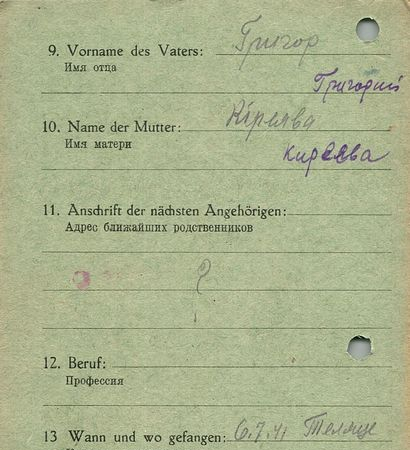 9. Vorname des Vaters: Григор
Имя отца
Григорий
10. Name der Mutter:
Имя матери
Киреева
11. Anschrift der nächsten Angehörigen:
Адрес ближайших родственников
?
12. Beruf:
Профессия
13 Wann und wo gefangen: 6.7.41